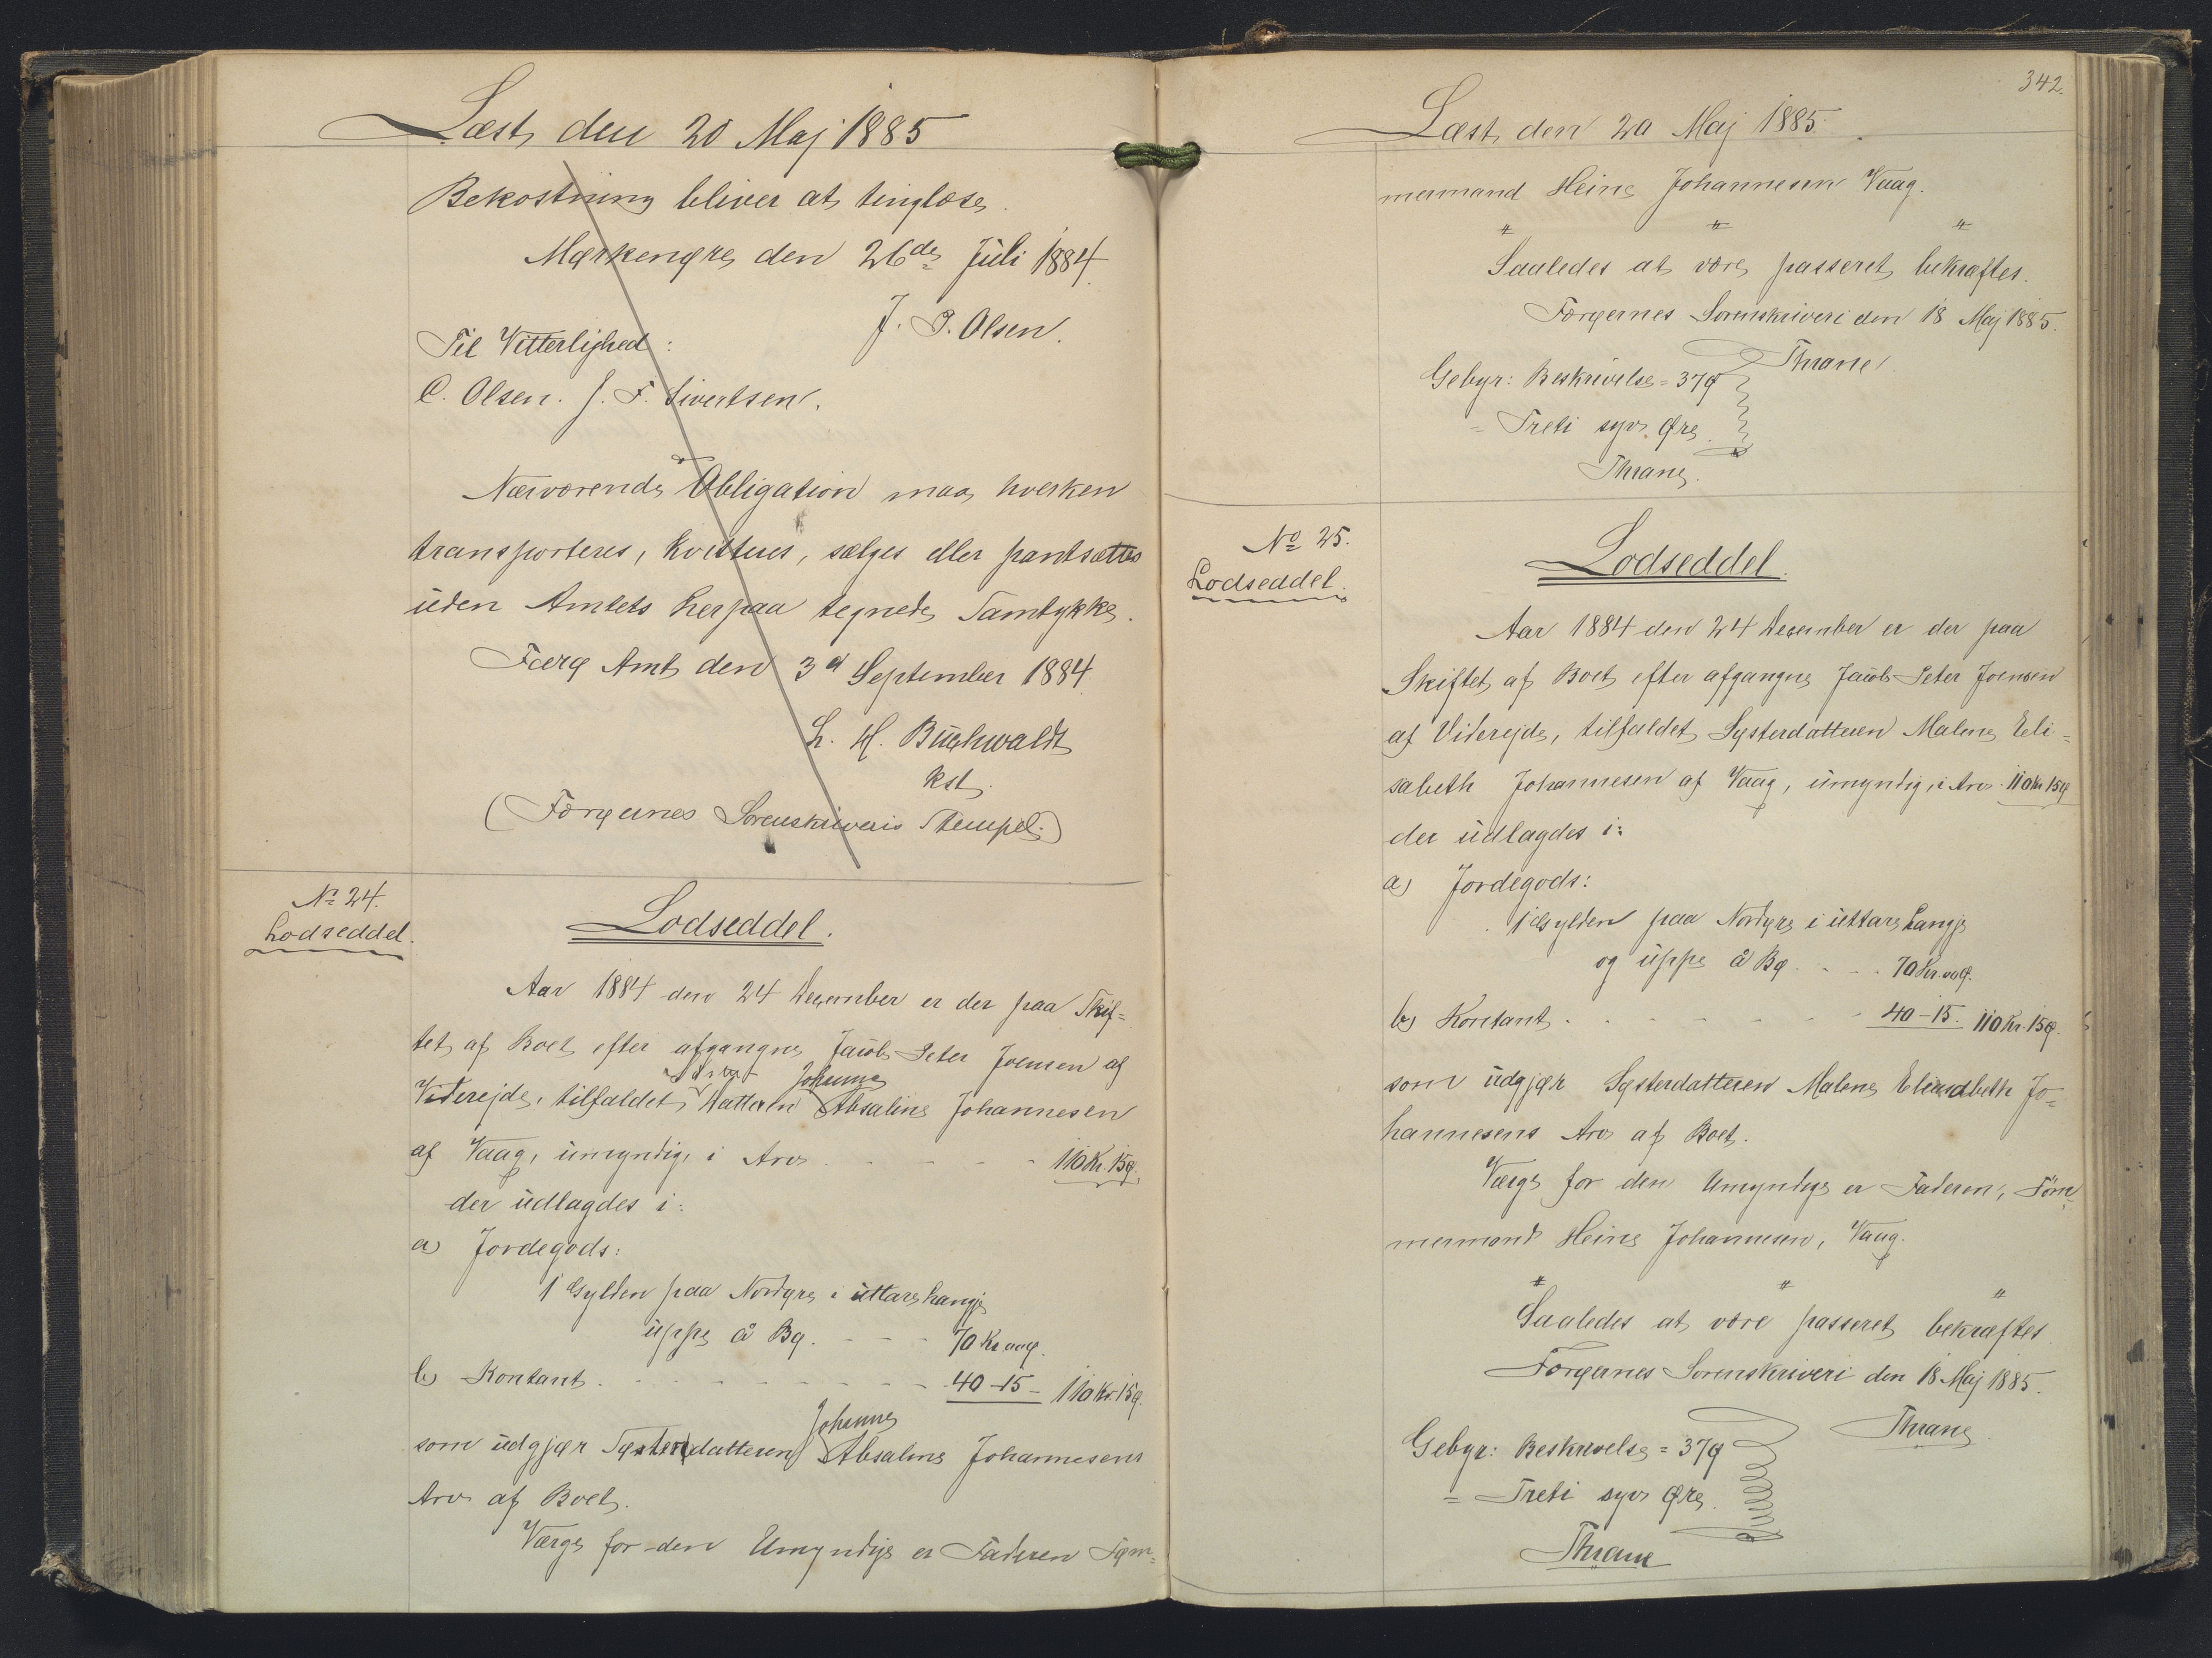 Læst den 20 Maj 1885
Bekostning bliver at tinglæse.
Mørkenøre den 26de Juli 1884.
J. P. Olsen.
Til Vitterlighed:
C. Olsen. J. F. Sivertsen.
Nærværende Obligation maa hverken
transporteres, kvitteres, sælges eller pantsættes
uden Amtets herpaa tegnede Samtykke.
Færø Amt den 3d September 1884
L. H. Buchwaldt
kst.
(Færøernes Sorenskriveris Stempel.)
No 24.
Lodseddel.
Lodseddel.
Aar 1884 den 24 December er der paa Skif=
tet af Boet efter afgangne Jacob Peter Joensen af
Viderejde, tilfaldet Datteren Johanne Absaline Johannesen
af Vaag, umyndig, i Arv . . . . 110 Kr. 15 ø.
der udlagdes i:
a) Jordegods:
1 Gylden paa Nordøre i uttare hangje
uppe å Bø. . . . 70 Kr. 00 ø.
b) Kontant . . . . . . . 40 - 15 - 110 Kr. 15 ø.
som udgjør Søsterdatteren Johanne Absaline Johannesens
Arv af Boet.
Værge for den Umyndige er Faderen Tøm=
342.
Læst den 20 Maj 1885.
mermand Heine Johannesen Vaag.
" " "
Saaledes at være passeret bekræftes.
Færøernes Sorenskriveri den 18 Maj 1885.
Thrane
Gebyr: Beskrivelse = 37 ø
= Treti syv Øre.
Thrane.
No 25.
Lodseddel.
Lodseddel.
Aar 1884 den 24 December er der paa
Skiftet af Boet efter afgangne Jacob Peter Joensen
af Viderejde, tilfaldet Søsterdatteren Malene Eli=
sabeth Johannesen af Vaag, umyndig, i Arv 110 Kr 15 ø
der udlagdes i:
a) Jordegods:
1 Gylden paa Nordøre i uttare hangje
og uppe å Bø. . . . 70 Kr. 00 ø.
b) Kontant . . . . . . . 40 - 15. 110 Kr. 15 ø.
som udgjør Søsterdatteren Malene Elisabeth Jo=
hannesens Arv af Boet.
Værge for den Umyndige er Faderen, Tøm=
mermand Heine Johannesen, Vaag.
" " "
Saaledes at være passeret bekræftes
Færøernes Sorenskriveri den 18 Maj 1885.
Thrane
Gebyr: Beskrivelse = 37 ø
= Treti syv Øre.
Thrane